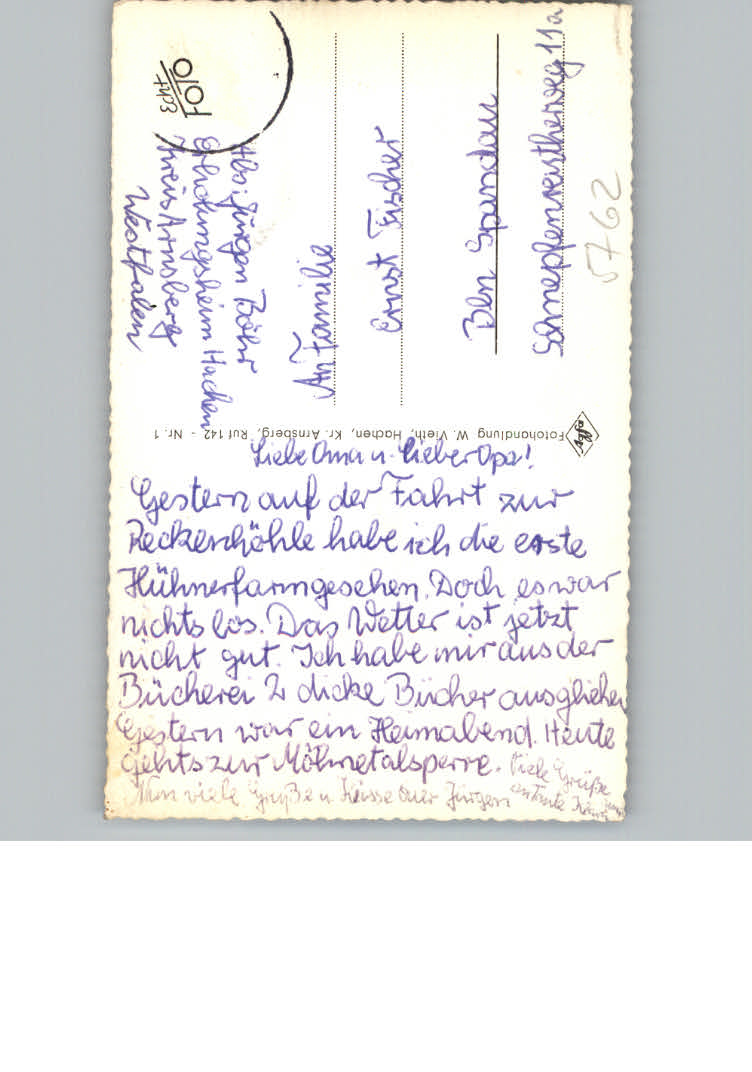 Liebe Oma u. Lieber Opa!
Gestern auf der Fahrt zur
Reckenhöhle habe ich die erste
Hühnerfarm gesehen. Doch es war
nichts los. Das Wetter ist jetzt
nicht gut. Ich habe mir aus der
Bücherei 2 dicke Bücher ausgliehen
Gestern war ein Heimabend. Heute
gehts zur Möhnetalsperre.
Nun viele Grüße u Küsse Euer Jürgen
Viele Grüße
an Tante
Fotohandlung W. Vieth, Hachen, Kr. Arnsberg, Ruf 142 - Nr. 1
Abs: Jürgen Bähr
Erholungsheim Hachen
Kreis Arnsberg
Westfalen
FOTO
An Familie
Ernst Fischer
Bln Spandau
11a
5762